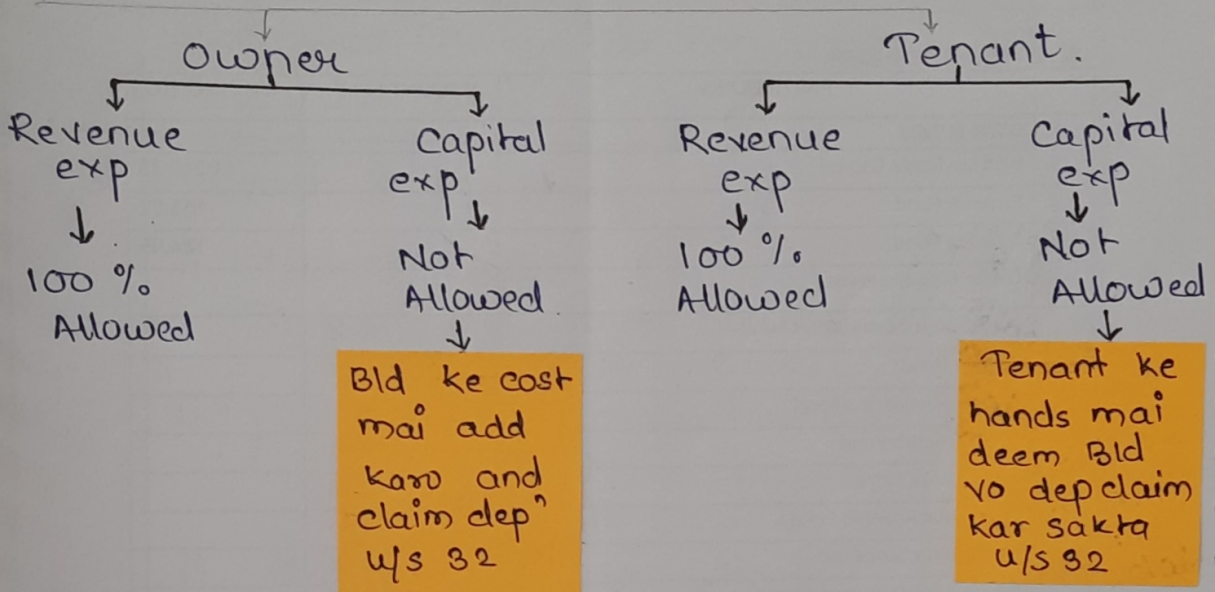 Owner
Revenue
exp
100 %
Allowed
Capital
exp
Not
Allowed.
Bld ke cost
mai add
karo and
claim depⁿ
u/s 32
Tenant.
Revenue
exp
100 %
Allowed
Capital
exp
Not
Allowed
Tenant ke
hands mai
deem Bld
vo dep claim
kar sakta
u/s 32